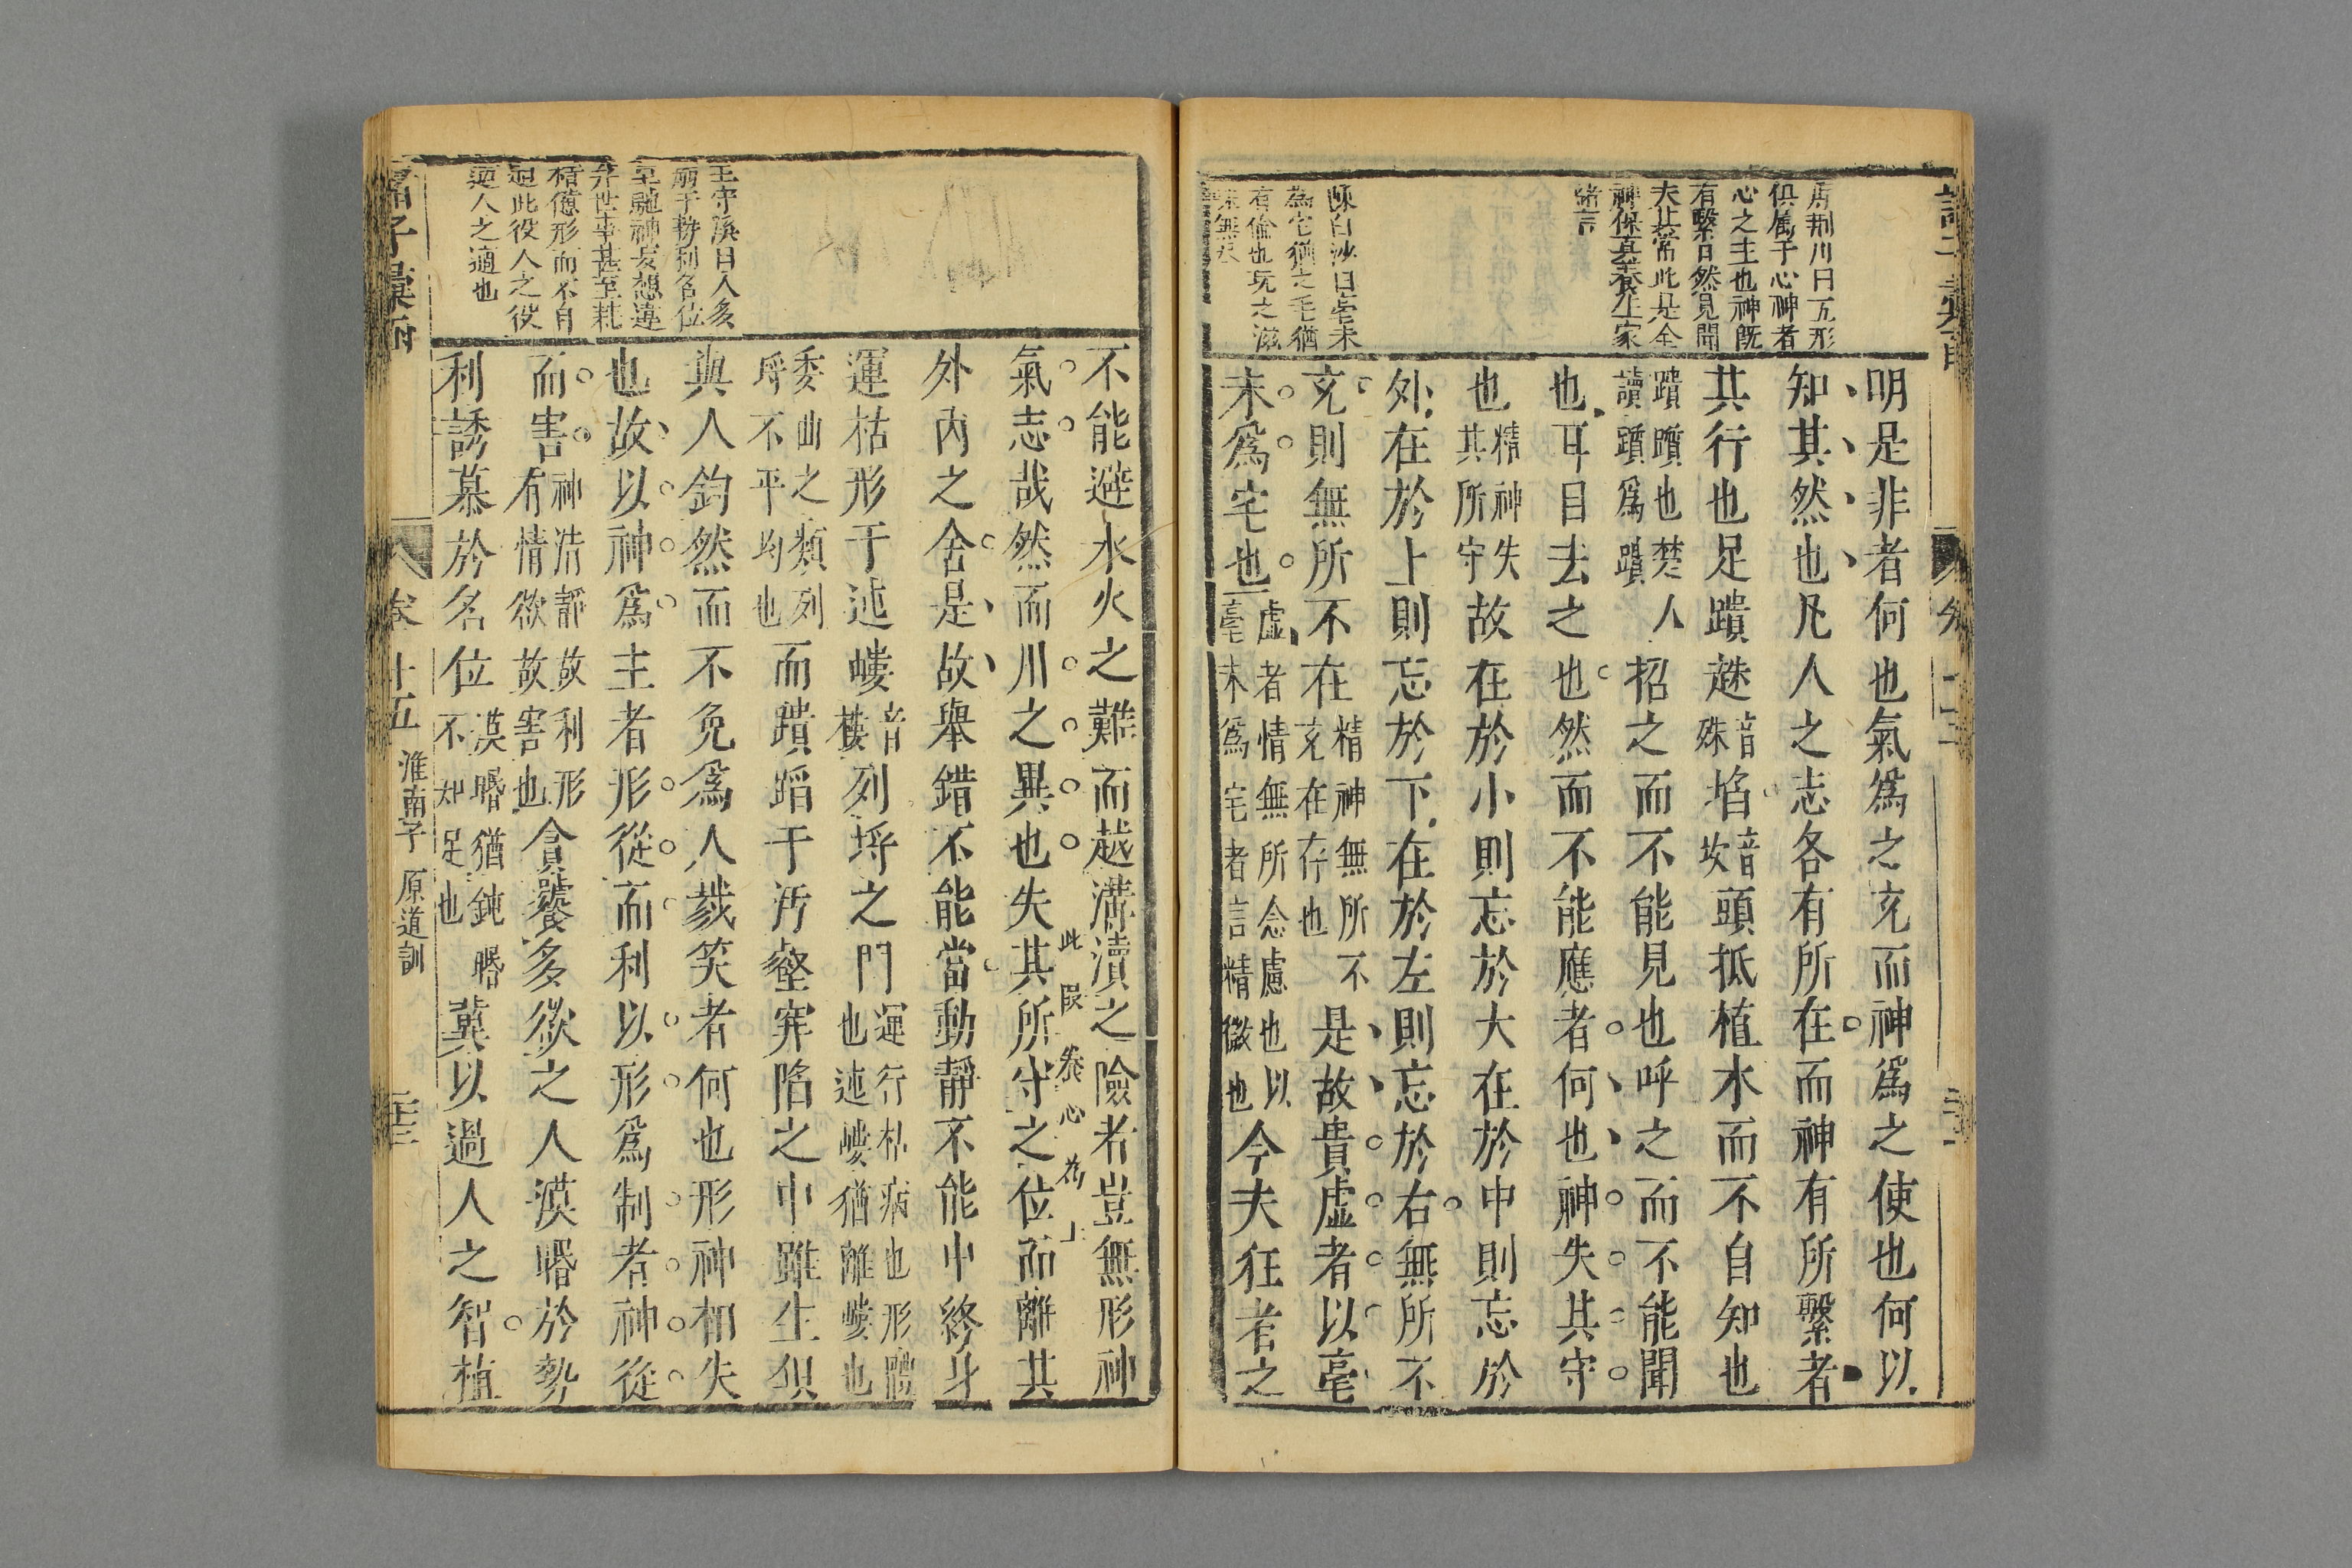 唐荆川曰五形
俱属于心神者
心之主也神既
有繫自然見聞
夫其常此是全
神保真養生家
緒言
陳白沙曰毫末
為宅猶之毛猶
有倫也玩之滋
味無窮
明是非者何也氣爲之充而神爲之使也何以
知其然也凡人之志各有所在而神有所繫者
其行也足蹪趎音殊埳音坎頭抵植木而不自知也
蹪躓也楚人讀躓爲蹪招之而不能見也呼之而不能聞
也耳目去之也然而不能應者何也神失其守
也精神失其所守故在於小則忘於大在於中則忘於
外在於上則忘於下在於左則忘於右無所不
充則無所不在精神無所不充在存也是故貴虛者以毫
末爲宅也虛者情無所念慮也以毫末爲宅者言精微也今夫狂者之
王守溪曰人多
溺于勢利名位
至馳神妄想違
弃世事甚至耗
精憊形而不自
知此役人之役
適人之適也
不能避水火之難而越溝瀆之險者豈無形神
氣志哉然而川之異也失其所守之位而離其
此段養心為上
外內之舍是故舉錯不能當動靜不能中終身
運枯形于連嶁音樓列埒之門運行枯病也形體也連嶁猶離嶁也
委曲之類列埒不平均也而蹪蹈于汚壑穽陷之中雖生俱
與人鈞然而不免爲人戮笑者何也形神相失
也故以神爲主者形從而利以形爲制者神從
而害神清靜故利形有情欲故害也貪饕多欲之人漠㬆於勢
利誘慕於名位漠㬆猶鈍㬆不知足也冀以過人之智植
卷十五
淮南子
原道訓